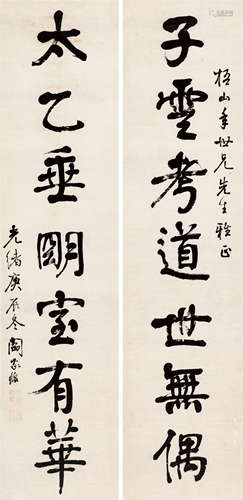 子雲考道世無偶
梧山年世兄先生雅正
太乙垂明室有華
光緒庚辰冬 閻敬銘